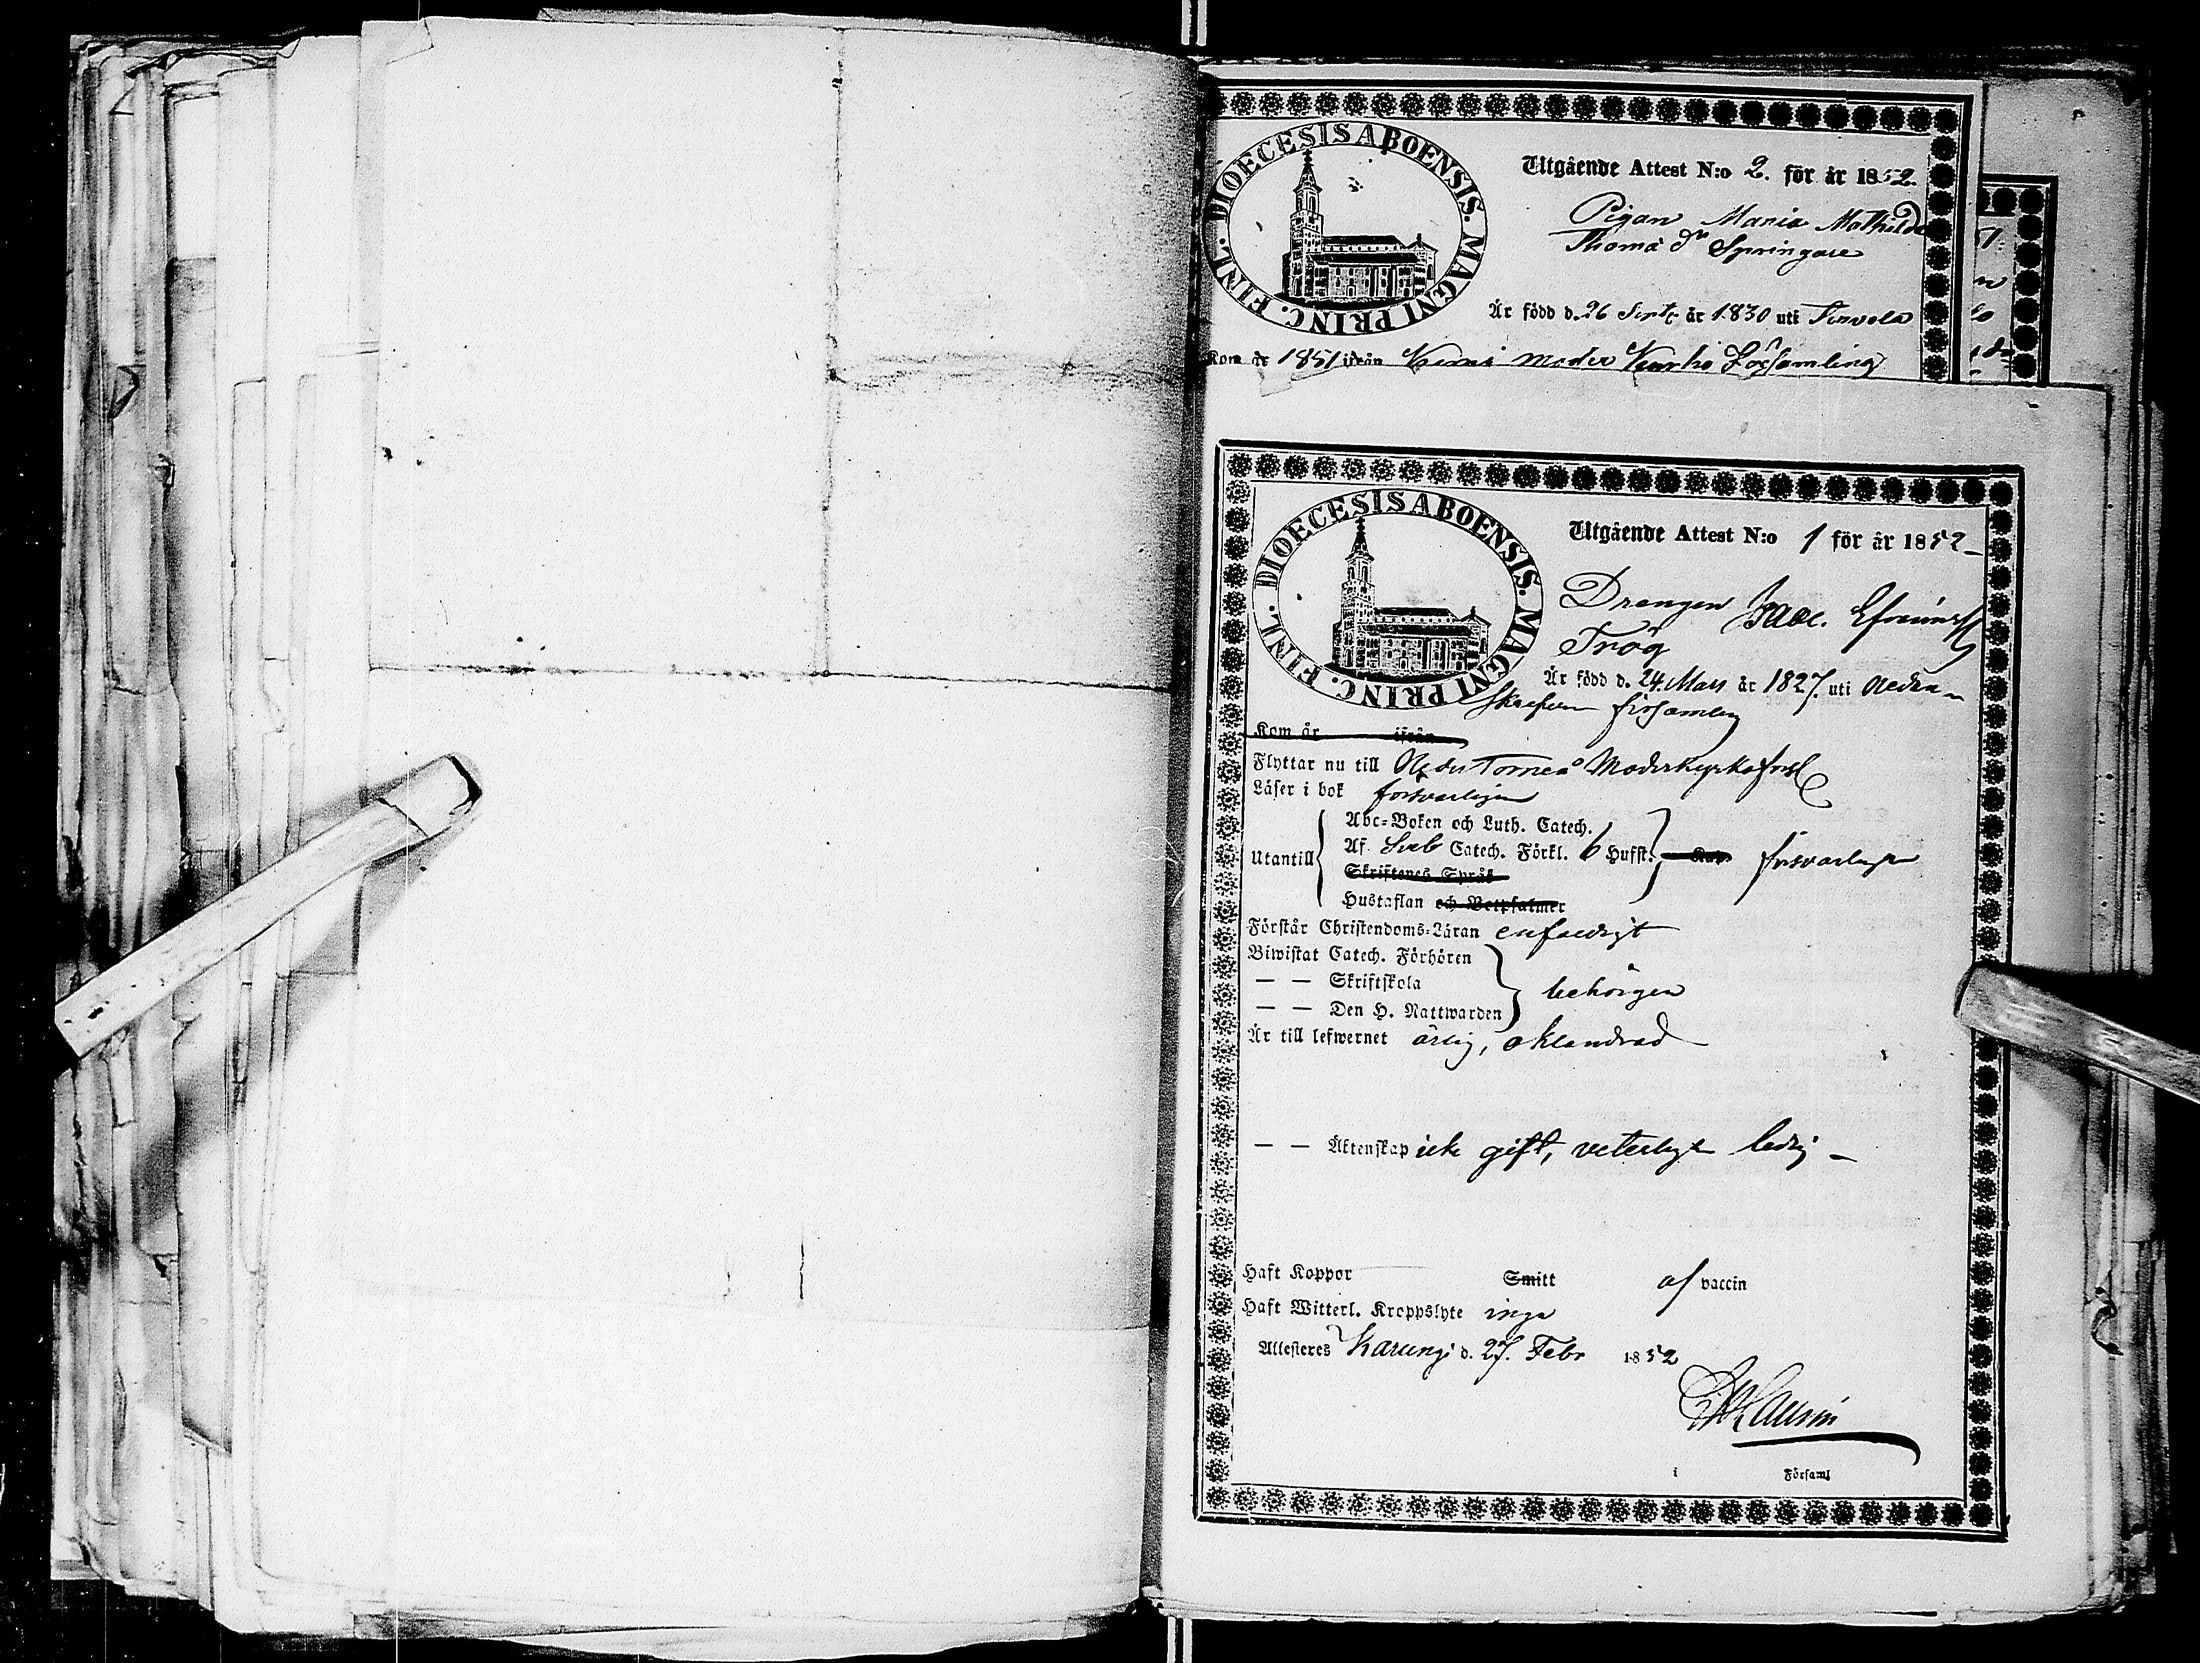 DIOECESIS ABOENSIS. MAGNI PRINC. FINL.
Utgående Attest N:o 2. för år 1852.
Pigan Maria Mathilda
Thoma dr Springare
Är född d. 26 Sept. år 1830 uti Tervola
Kom år 1851 ifrån Kemi moder Kyrko Församling
DIOECESIS ABOENSIS. MAGNI PRINC. FINL.
Utgående Attest N:o 1 för år 1852
Drengen Isac. Efraimss
Trög
Är född d. 24. Mars år 1827. uti Nedra
församlg
Kom år ifrån
Flyttar nu till Neder Torneå Moderkyrkoförs
Läser i bok försvarligen
Utantill
Abc-Boken och Luth. Catech.
Af Sveb Catech. Förkl. 6 Hufst. Kap. försvarligen
Skriftenes Språk
Hustaflan och Botpsalmer
Förstår Christendoms-Läran enfaldigt
Biwistat Catech. Förhören
— — Skriftskola behörigen
— — Den H. Nattwarden
Är till lefwernet ärlig, oklandrad
— — Äktenskap icke gift, veterligen ledig
Haft Koppor Smitt af vaccin
Haft Witterl. Kroppslyte inga
Attesteres Karungi d. 27. Febr 1852
i Församl